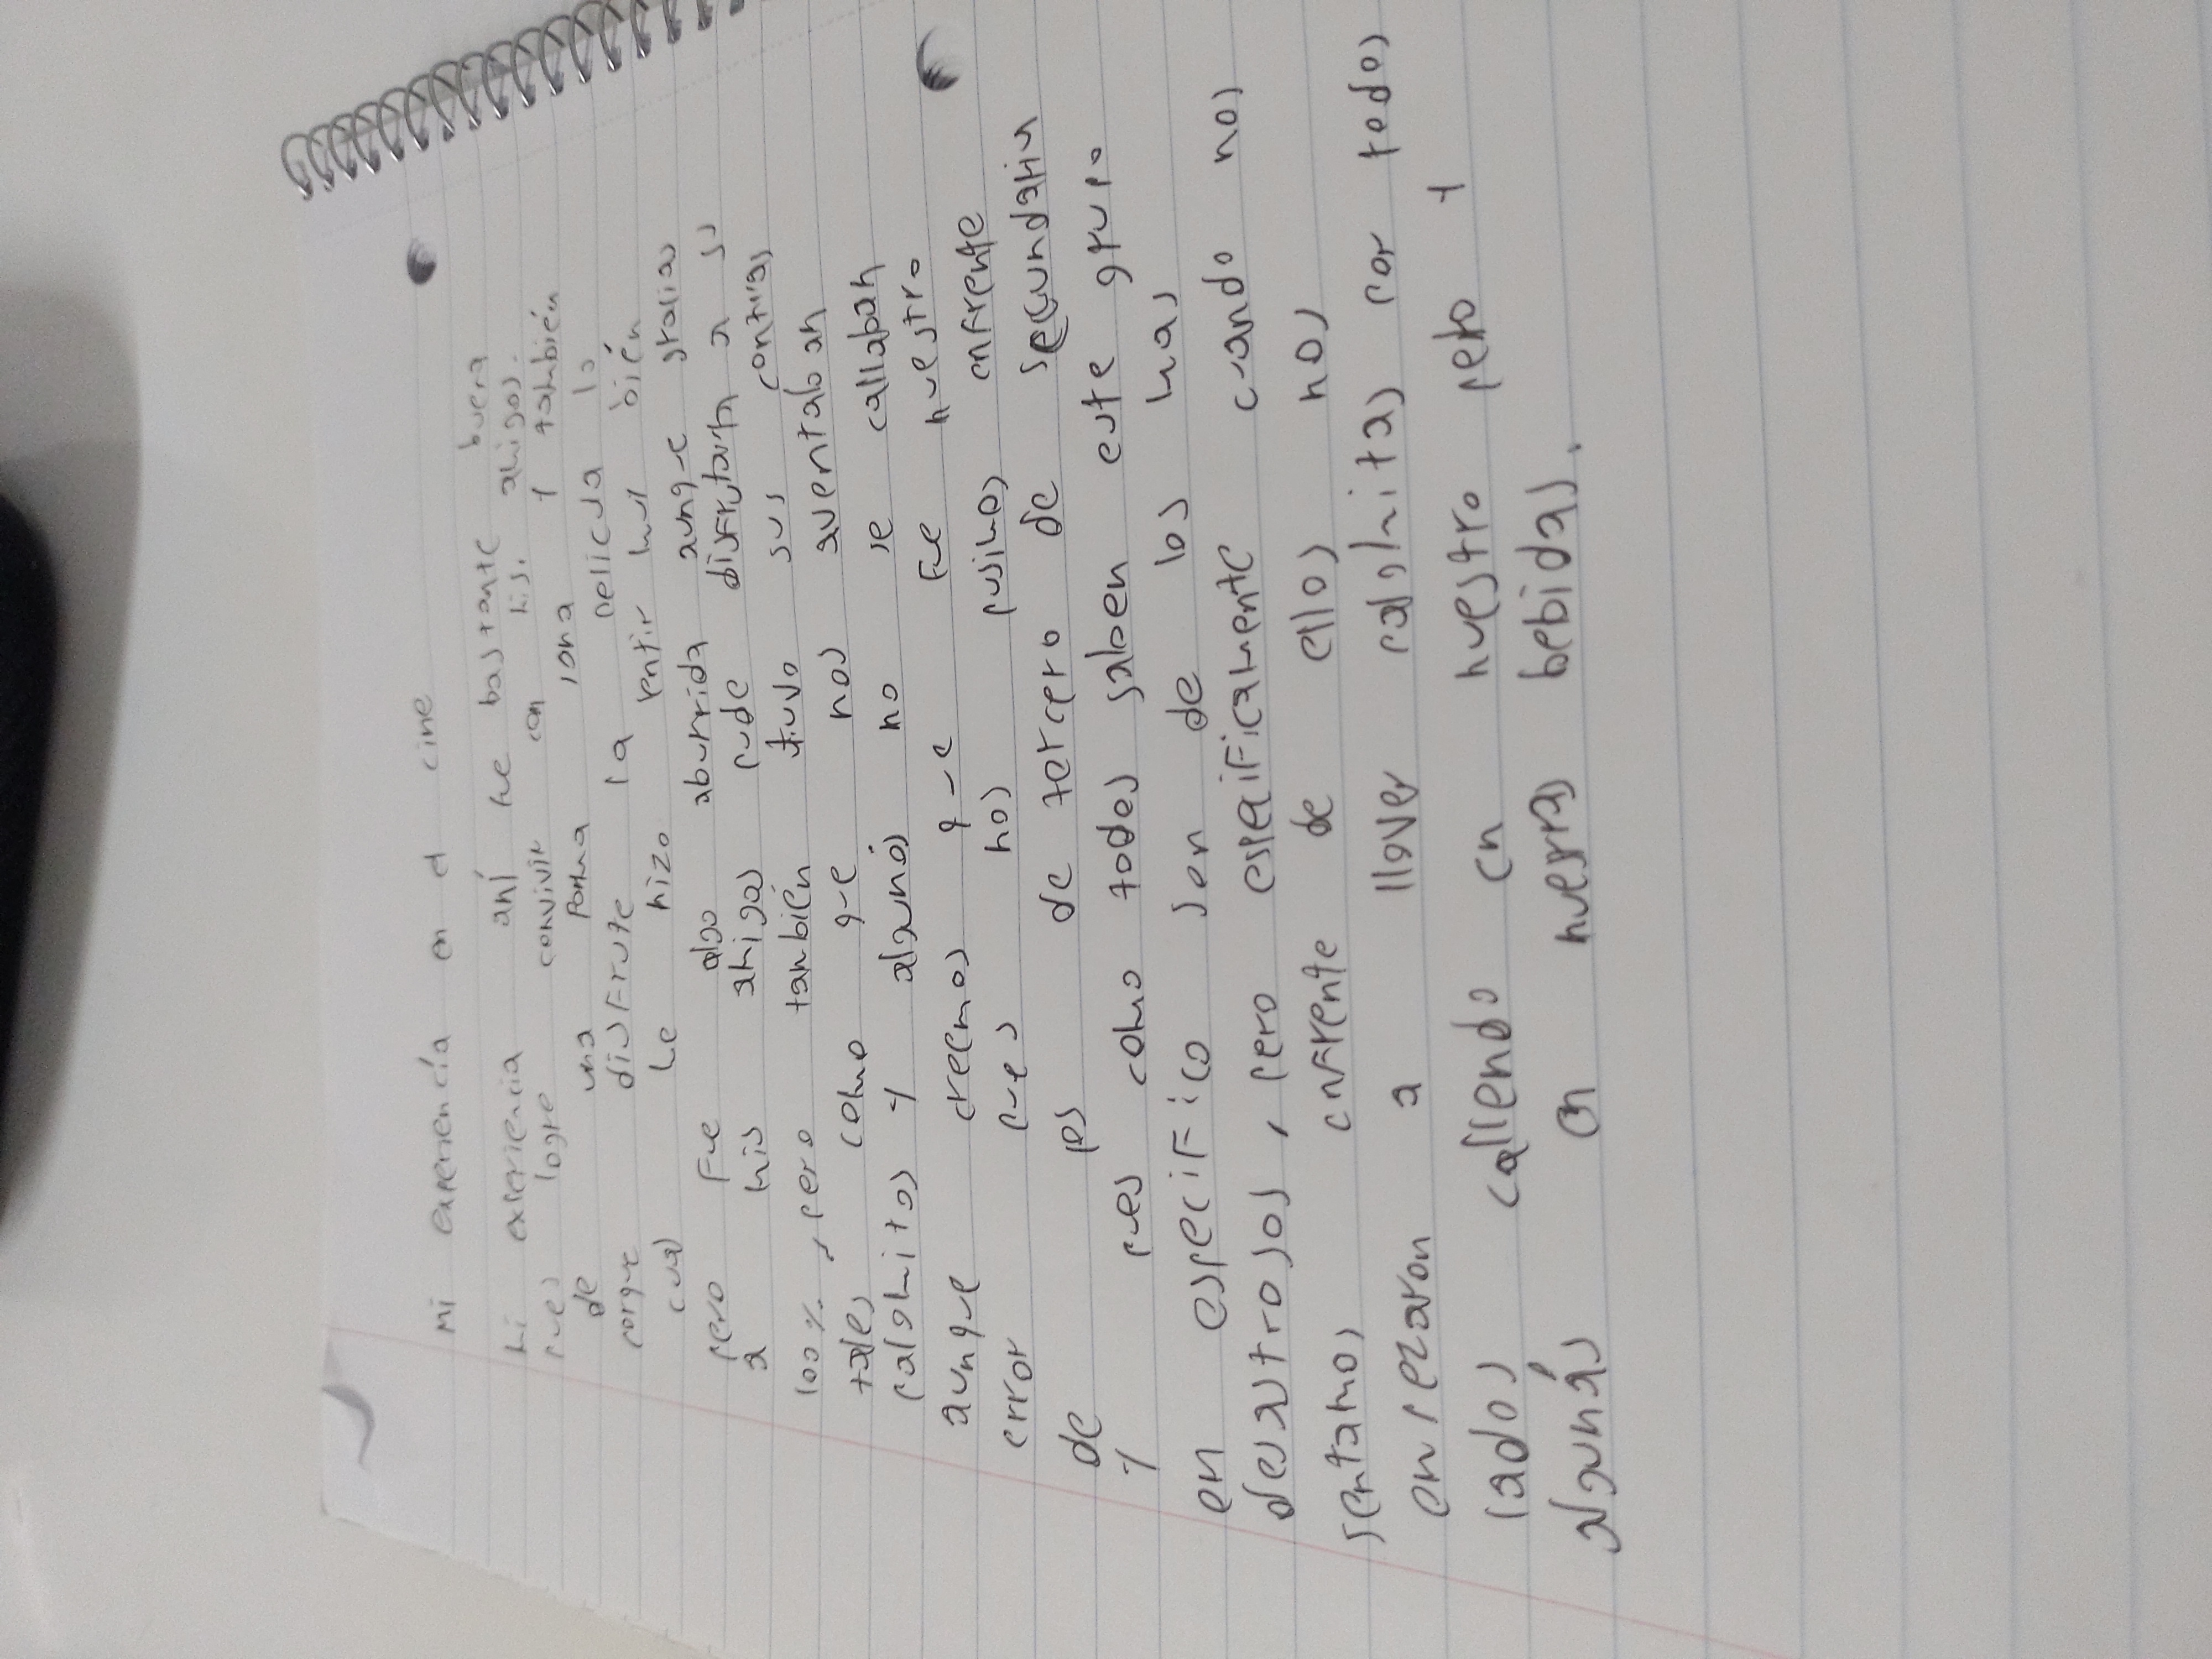 Mi experiencía en el cine
Mi experiencia ahí fue bastante buena
pues logre convivir con mis amigos.
de una forma sona y también
porque disfrute la pelicula lo
cual me hizo sentir muy bién
pero fue algo aburrida aunque gracias
a mis amigos pude disfrutarla a su
100%, pero también tuvo sus contras
tales como que nos aventaban
palomitos y algunos no se callaban
aunque creemos que fue nuestro
error pues nos pusimos enfrente
de ps de tercero de secundaria
y pues como todos saben este grupo
en especifico son de los mas
desastrosos, pero especificamente cuando nos
sentamos enfrente de ellos nos
empezaron a llover palomitas por todos
lados callendo en nuestro pelo y
algunás en nuestras bebidas.